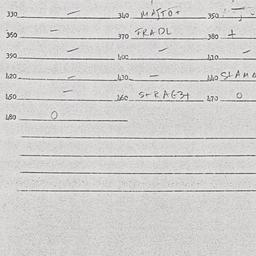 330 — 340 MAJTO+ 350
360 — 370 TRADL 380 +
390 — 400 — 410 —
420 — 430 — 440 SLAMA
450 — 460 StRAGE+ 470 0
480 0